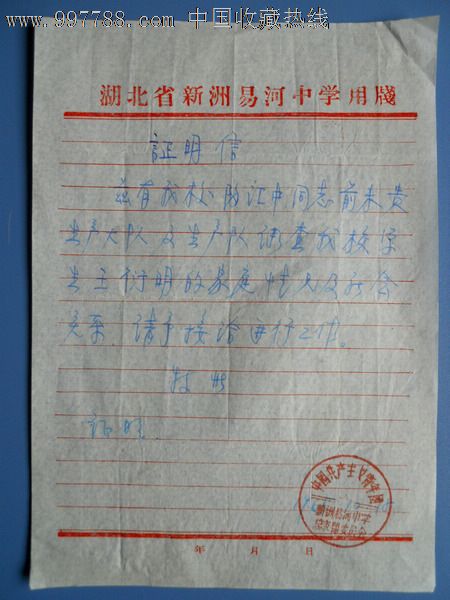 www.997788.com 中国收藏热线
湖北省新洲易河中学用牋
証明信
兹有我校 江中同志前来贵
生产大队及生产队调查我校学
生王衍明的家庭情况及社会
关系.请予接洽进行工作。
特此
証明.
中国共产主义青年团
新洲易河中学
委员会
年 月 日